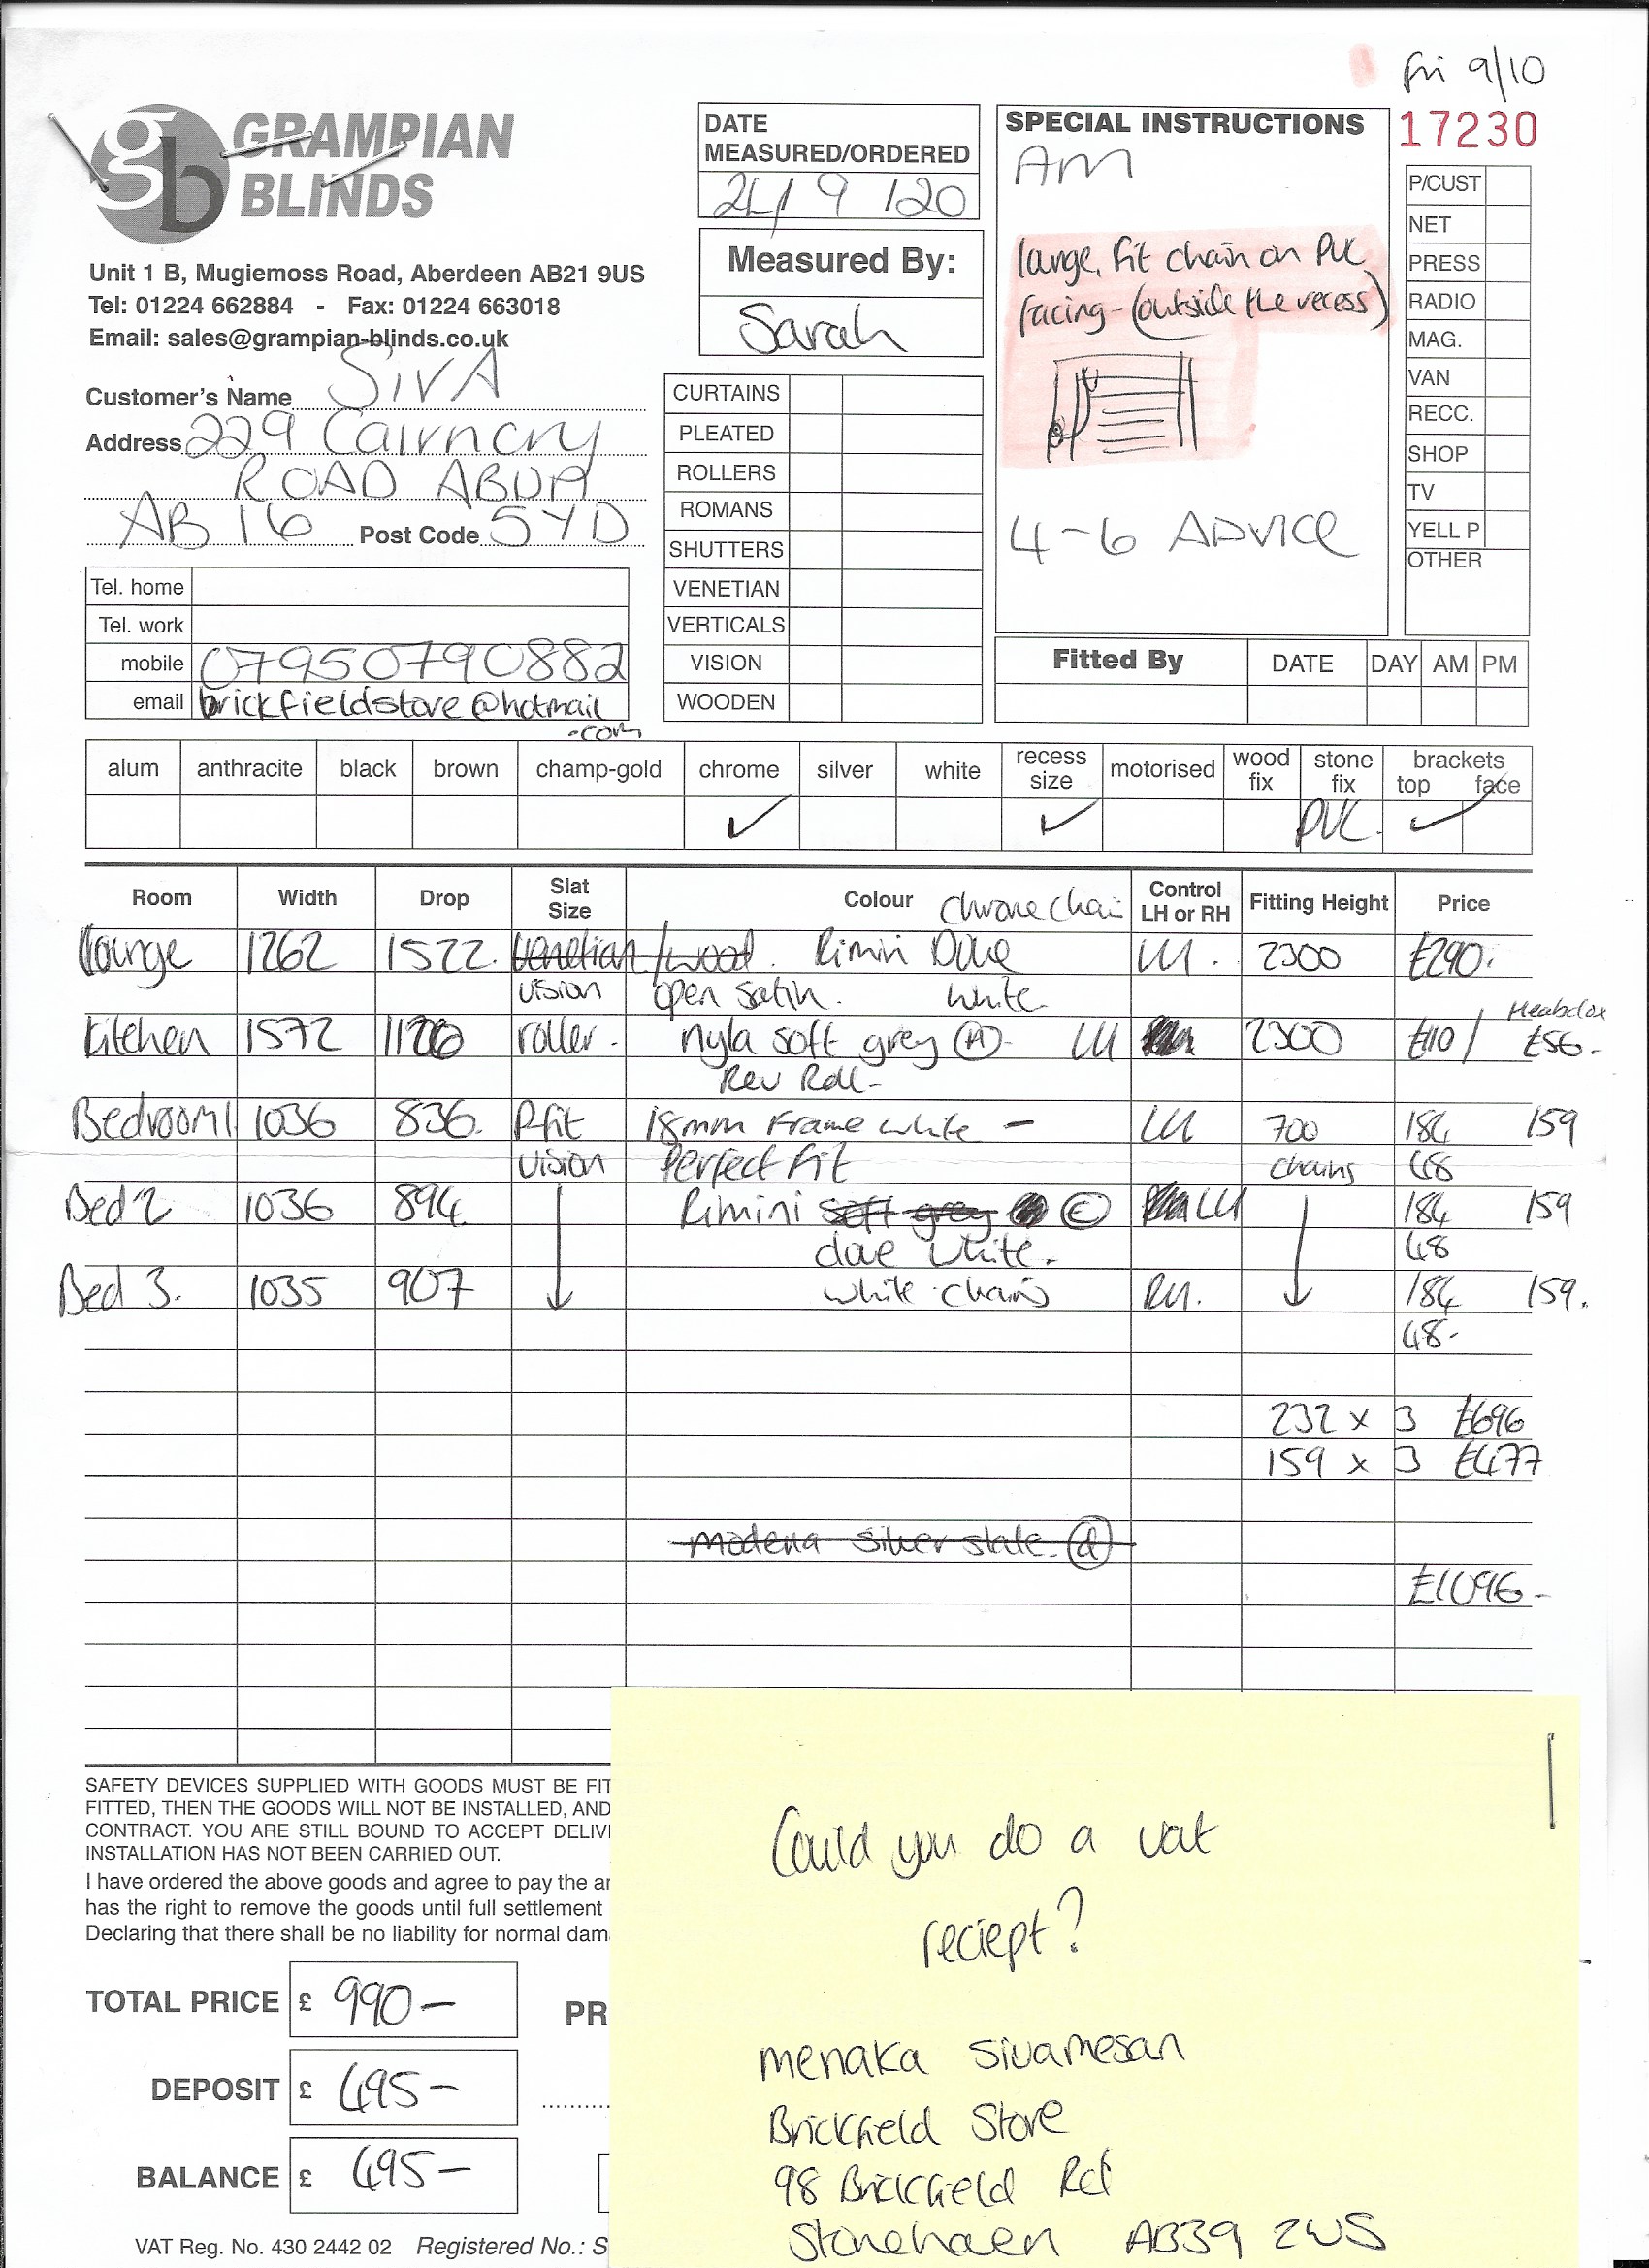 Fri 9/10
GRAMPIAN
BLINDS
gb
Unit 1 B, Mugiemoss Road, Aberdeen AB21 9US
Tel: 01224 662884 - Fax: 01224 663018
Email: sales@grampian-blinds.co.uk
DATE
MEASURED/ORDERED
24/9/20
Measured By:
Sarah
SPECIAL INSTRUCTIONS
AM
lounge, fit chain on PVC
facing - (outside the recess)
4-6 ADVICE
17230
P/CUST
NET
PRESS
RADIO
MAG.
VAN
RECC.
SHOP
TV
YELL P
OTHER
Customer's Name SIVA
Address 229 Cairncry
ROAD ABDN
AB16 Post Code 5YD
Tel. home
Tel. work
mobile 07950790882
email brickfieldstore@hotmail
.com
CURTAINS
PLEATED
ROLLERS
ROMANS
SHUTTERS
VENETIAN
VERTICALS
VISION
WOODEN
Fitted By DATE DAY AM PM
alum anthracite black brown champ-gold chrome silver white recess size motorised wood fix stone fix brackets top face
✓ ✓ PVC. ✓
Room Width Drop Slat Size Colour Chrome chain Control LH or RH Fitting Height Price
Lounge 1262 1522. venetian/wood. Rimini Dove LH. 2300 £290.
vision open satin. white.
Headbox
Kitchen 1572 1120 roller - nyla soft grey (A) - LH 2300 £110 / £56-
Rev Roll-
Bedroom 1 1036 836. P.fit 18mm Frame white - LH 700 184 159
vision Perfect Fit chains 48
Bed 2 1036 894 Rimini soft grey (C) LH 184 159
dove white. 48
Bed 3. 1035 907 white chains RH. 184 159.
48-
232 x 3 £696
159 x 3 £477
modena silver slate. (d)
£1096-
SAFETY DEVICES SUPPLIED WITH GOODS MUST BE FIT
FITTED, THEN THE GOODS WILL NOT BE INSTALLED, AND
CONTRACT. YOU ARE STILL BOUND TO ACCEPT DELIV
INSTALLATION HAS NOT BEEN CARRIED OUT.
I have ordered the above goods and agree to pay the a
has the right to remove the goods until full settlement
Declaring that there shall be no liability for normal dam
TOTAL PRICE £ 990-
PR
DEPOSIT £ 495-
BALANCE £ 495-
VAT Reg. No. 430 2442 02 Registered No.: S
Could you do a vat
reciept?
Menaka Sivamesan
Brickfield Store
98 Brickfield Rd
Stonehaen AB39 2WS